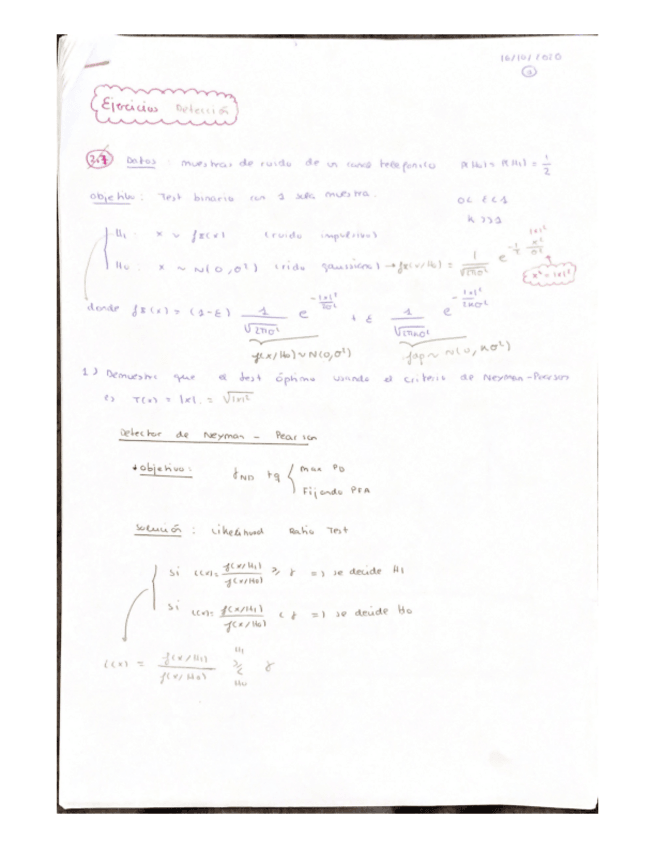 16/10/2020
Ejercicios Detección
Datos : muestras de ruido de un canal telefónico P(H₀) = P(H₁) = 1/2
Objetivo : Test binario con 1 sola muestra. 0 < ε < 1
K >>1
H₁ : x ~ fε(x) (ruido impulsivo)
H₀ : x ~ N(0,σ²) (ruido gaussiano) → f(x/H₀) = 1/√(2πσ²) e^(-1/2 |x|²/σ²)
x² = |x|²
donde fε(x) = (1-ε) 1/√(2πσ²) e^(-|x|²/2σ²) + ε 1/√(2πKσ²) e^(-|x|²/2Kσ²)
f(x/H₀) ~ N(0,σ²) ~ N(0, Kσ²)
1) Demuestra que el test óptimo usando el criterio de Neyman-Pearson
es T(x) = |x| = √|x|²
Detector de Neyman - Pearson
objetivo: tq { max PD
Fijando PFA
Solución : Likelihood Ratio Test
si L(x)= f(x/H₁)/f(x/H₀) ≥ γ => se decide H₁
si L(x)= f(x/H₁)/f(x/H₀) < γ => se decide H₀
L(x) = f(x/H₁)/f(x/H₀) H₁ ≥ < H₀ γ